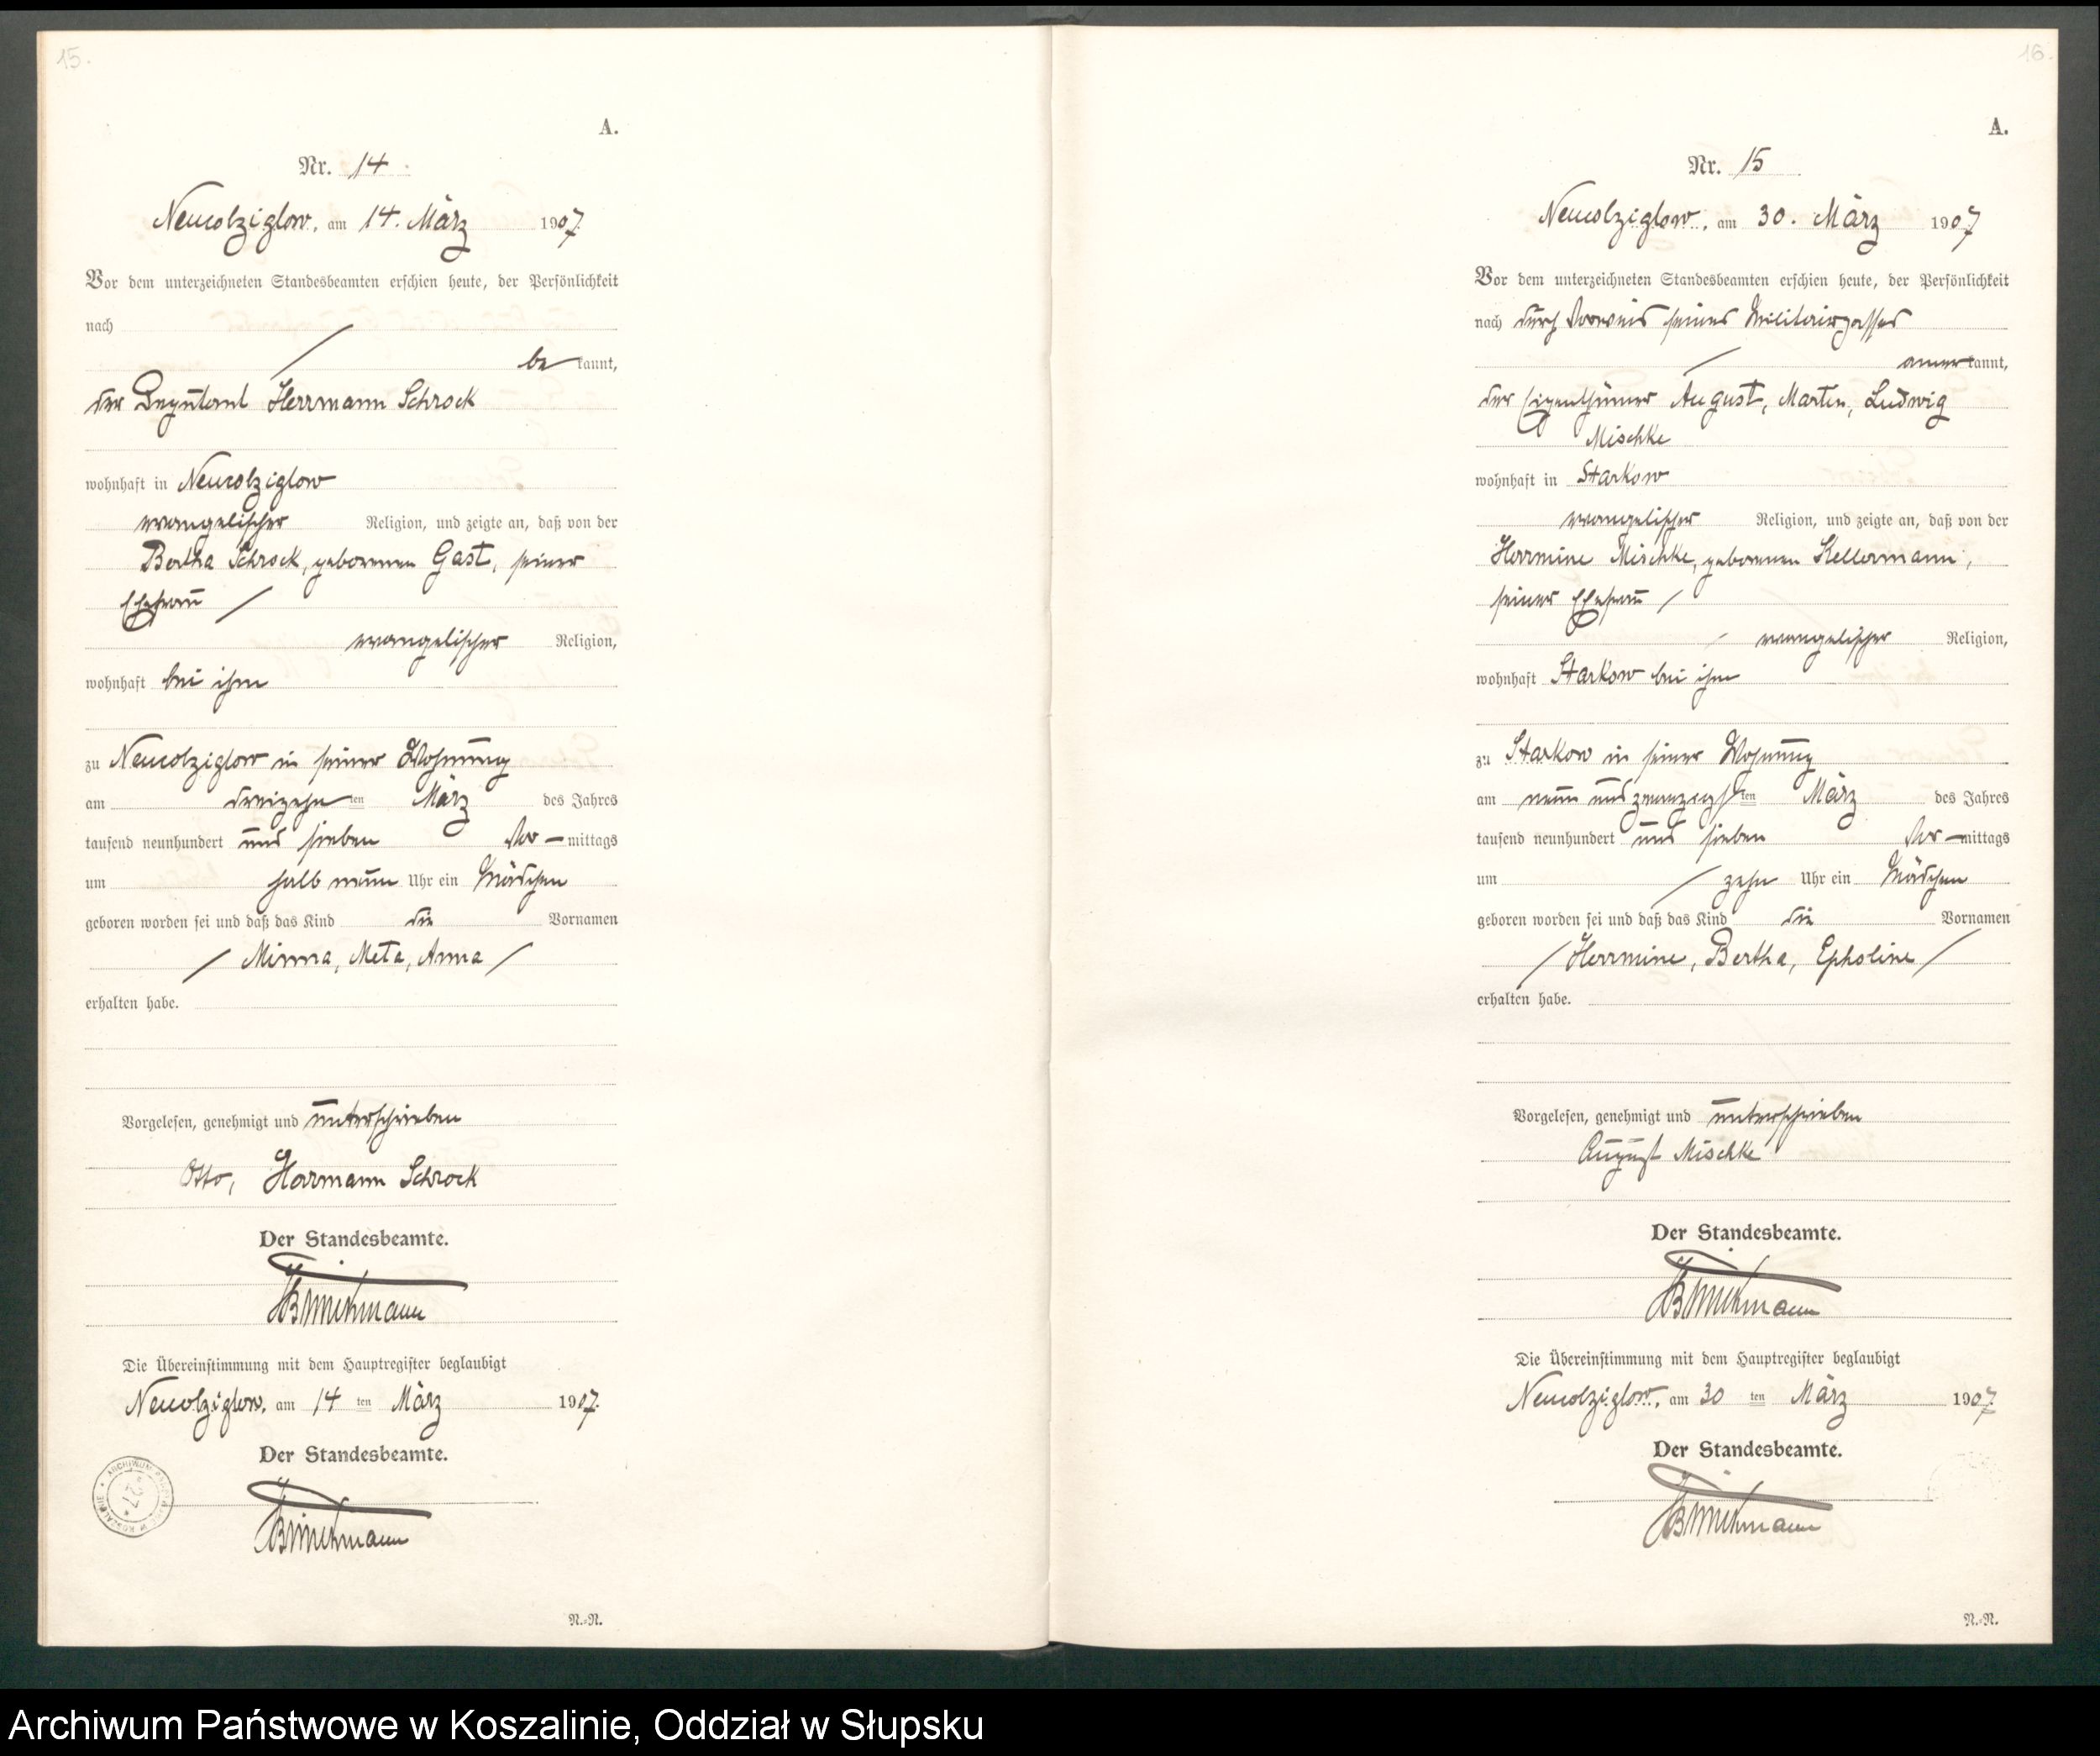 15.
A.
Nr. 14
Neucolziglow, am 14. März 1907.
Vor dem unterzeichneten Standesbeamten erschien heute, der Persönlichkeit
nach
be kannt,
der Deputant Herrmann Schrock
wohnhaft in Neucolziglow
evangelischer Religion, und zeigte an, daß von der
Bertha Schrock, geborenen Gast, seiner
Ehefrau
evangelischer Religion,
wohnhaft bei ihm
zu Neucolziglow in seiner Wohnung
am dreizehnten März des Jahres
tausend neunhundert und sieben Vor-mittags
um halb neun Uhr ein Mädchen
geboren worden sei und daß das Kind die Vornamen
Minna, Meta, Anna
erhalten habe.
Vorgelesen, genehmigt und unterschrieben
Otto, Herrmann Schrock
Der Standesbeamte.
Die Übereinstimmung mit dem Hauptregister beglaubigt
Neucolziglow, am 14 ten März 1907.
Der Standesbeamte.
27
N.=N.
16.
A.
Nr. 15
Neucolziglow, am 30. März 1907
Vor dem unterzeichneten Standesbeamten erschien heute, der Persönlichkeit
nach durch Vorweis seines Militairpasses
anerkannt,
der Eigenthümer August, Martin, Ludwig
Mischke
wohnhaft in Starkow
evangelischer Religion, und zeigte an, daß von der
Herrmine Mischke, geborenen Kellermann,
seiner Ehefrau
evangelischer Religion,
wohnhaft Starkow bei ihm
zu Starkow in seiner Wohnung
am neun und zwanzigsten März des Jahres
tausend neunhundert und sieben Vor-mittags
um zehn Uhr ein Mädchen
geboren worden sei und daß das Kind die Vornamen
Herrmine, Bertha, Epholine
erhalten habe.
Vorgelesen, genehmigt und unterschrieben
August Mischke
Der Standesbeamte.
Die Übereinstimmung mit dem Hauptregister beglaubigt
Neucolziglow, am 30 ten März 1907.
Der Standesbeamte.
N.=N.
Archiwum Państwowe w Koszalinie, Oddział w Słupsku